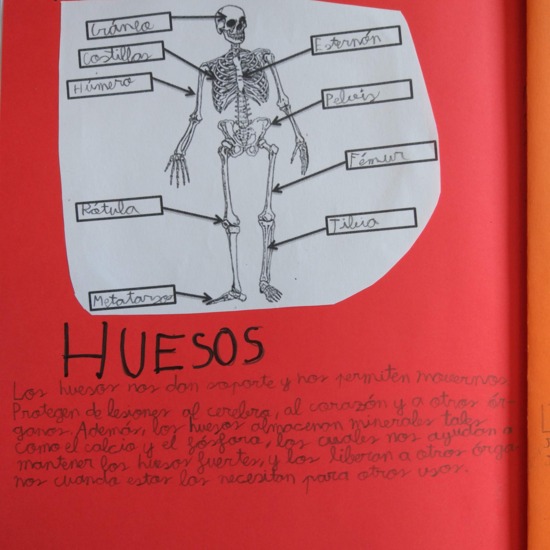 Cráneo
Costillas
Húmero
Esternón
Pelvis
Fémur
Rótula
Tibia
Metatarso
HUESOS
Los huesos nos dan soporte y nos permiten movernos.
Protegen de lesiones al cerebro, al corazón y a otros ór-
ganos. Además, los huesos almacenan minerales tales
como el calcio y el fósforo, los cuales nos ayudan a
mantener los huesos fuertes, y los liberan a otros órga
nos cuando estos los necesitan para otros usos.